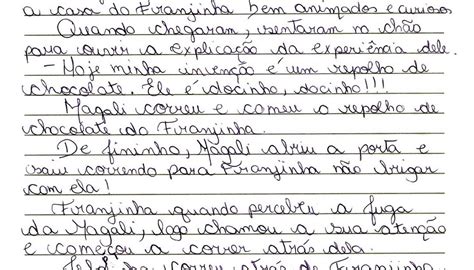 a casa do Franjinha bem animados e curiosos
Quando chegaram, sentaram no chão
para ouvir a explicação da experiência dele.
- Hoje minha invenção é um repolho de
chocolate. Ele é docinho, docinho!!!
Magali correu e comeu o repolho de
chocolate do Franjinha.
De fininho, Magali abriu a porta e
saiu correndo para Franjinha não brigar
com ela!
Franjinha quando percebeu a fuga
da Magali, logo chamou a sua atenção
e começou a correr atrás dela.
correu atrás de Franjinha